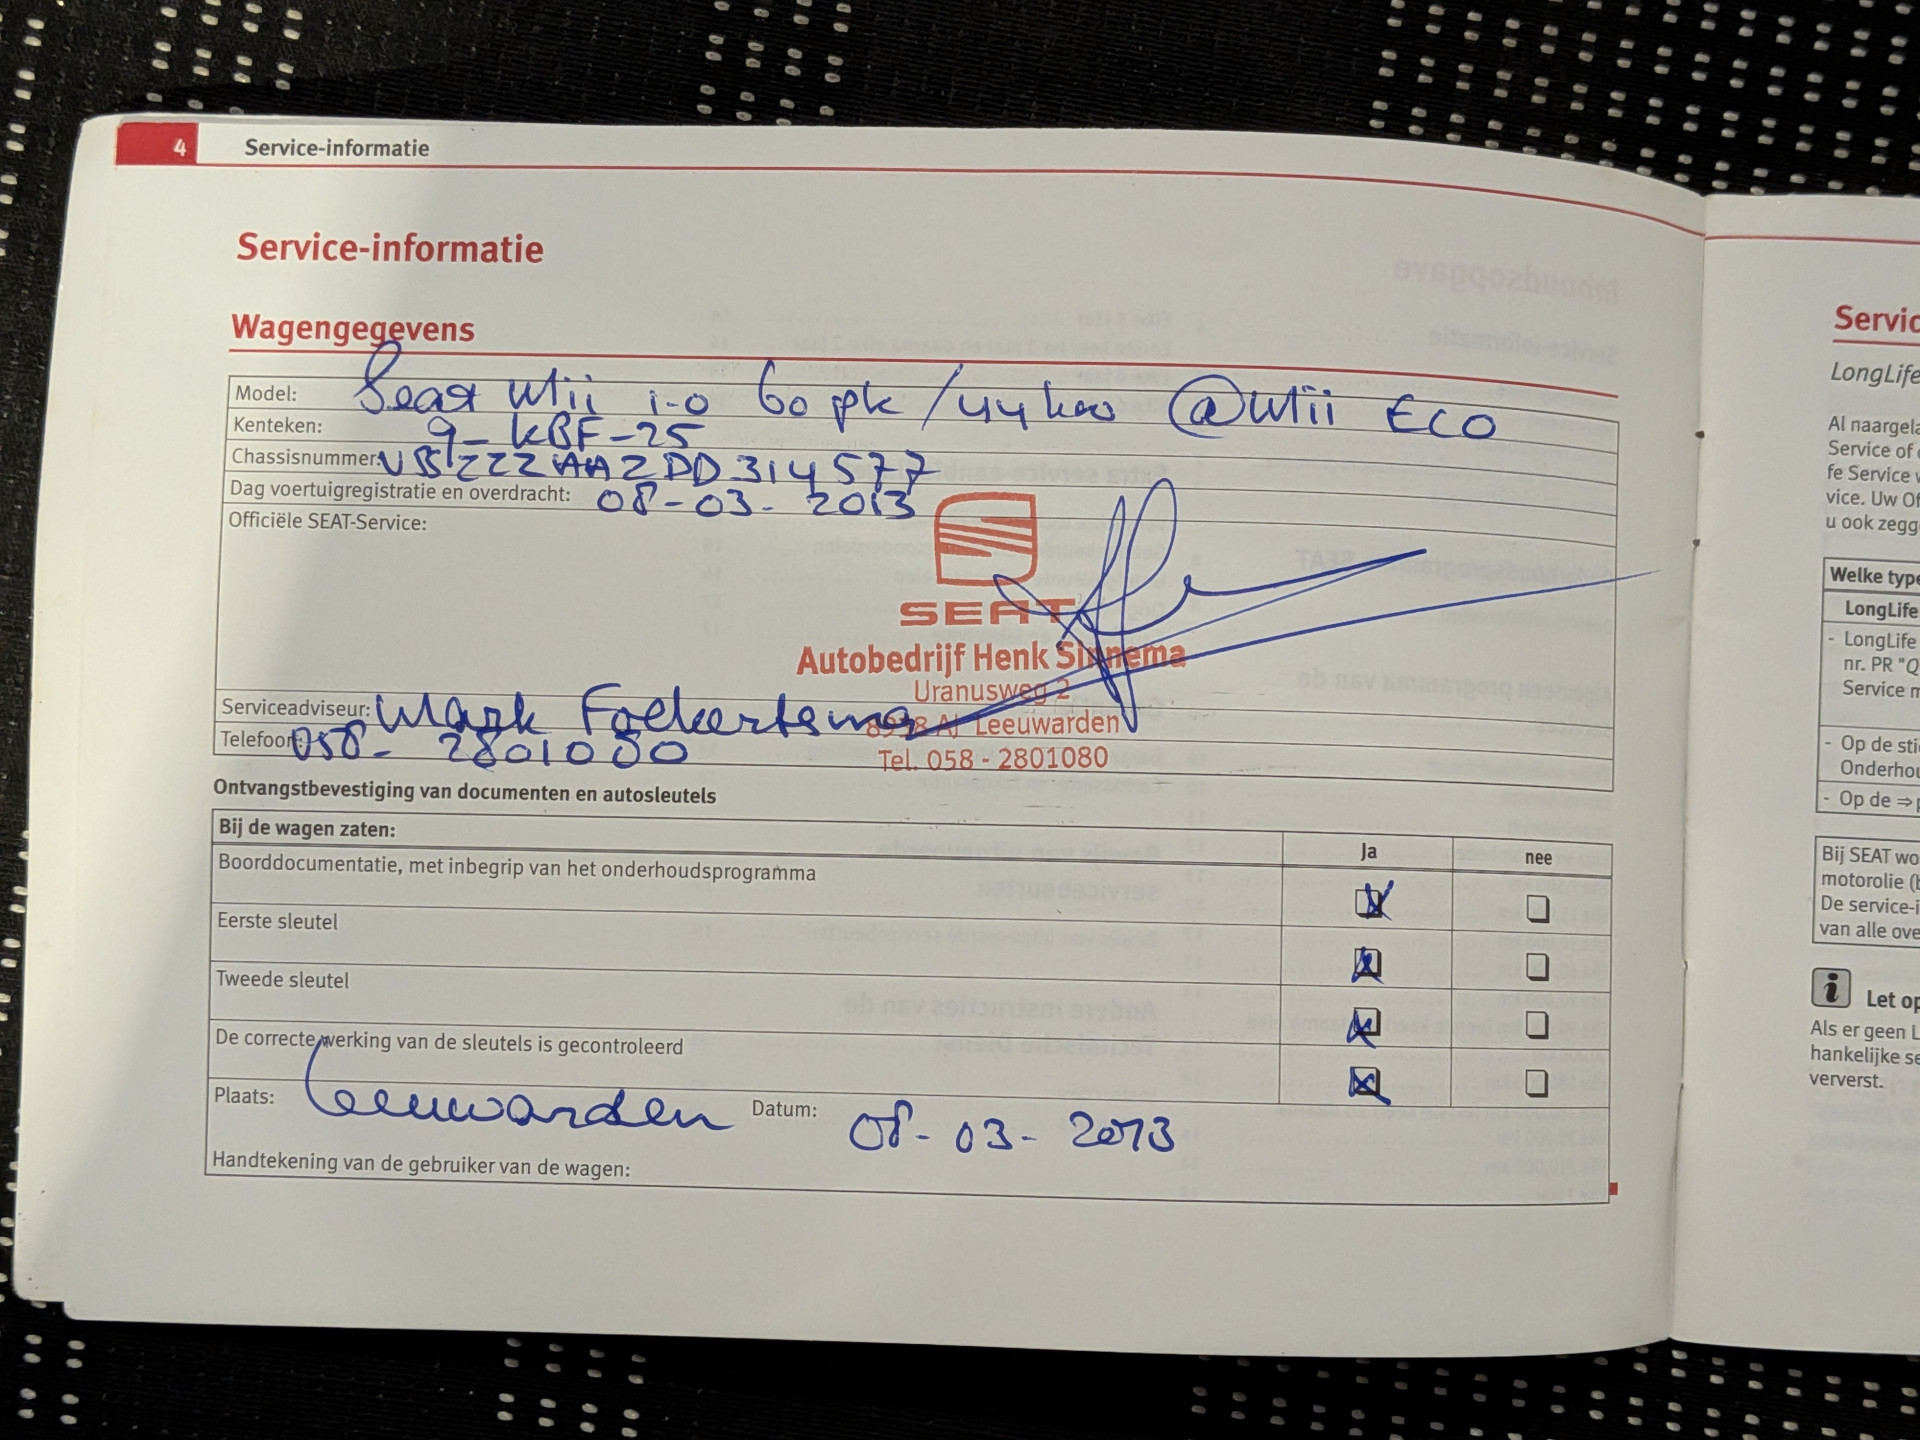 4 Service-informatie
Service-informatie
Wagengegevens
Model: Seat Mii 1.0 60 pk / 44 kw @Mii ECO
Kenteken: 9-KBF-25
Chassisnummer: VSSZZZAAZDD314577
Dag voertuigregistratie en overdracht: 08-03-2013
Officiële SEAT-Service:
SEAT
Autobedrijf Henk Sinnema
Uranusweg 2
8938 AJ Leeuwarden
Tel. 058 - 2801080
Serviceadviseur: Mark Folkertsma
Telefoon: 058-2801080
Ontvangstbevestiging van documenten en autosleutels
Bij de wagen zaten: Ja nee
Boorddocumentatie, met inbegrip van het onderhoudsprogramma
Eerste sleutel
Tweede sleutel
De correcte werking van de sleutels is gecontroleerd
Plaats: Leeuwarden Datum: 08-03-2013
Handtekening van de gebruiker van de wagen:
Servic
LongLife
Al naargela
Service of
fe Service v
vice. Uw Of
u ook zegg
Welke type
LongLife
- LongLife
nr. PR "Q
Service m
- Op de sti
Onderhou
- Op de ⇒ p
Bij SEAT wo
motorolie (b
De service-i
van alle ove
i Let op
Als er geen L
hankelijke se
ververst.